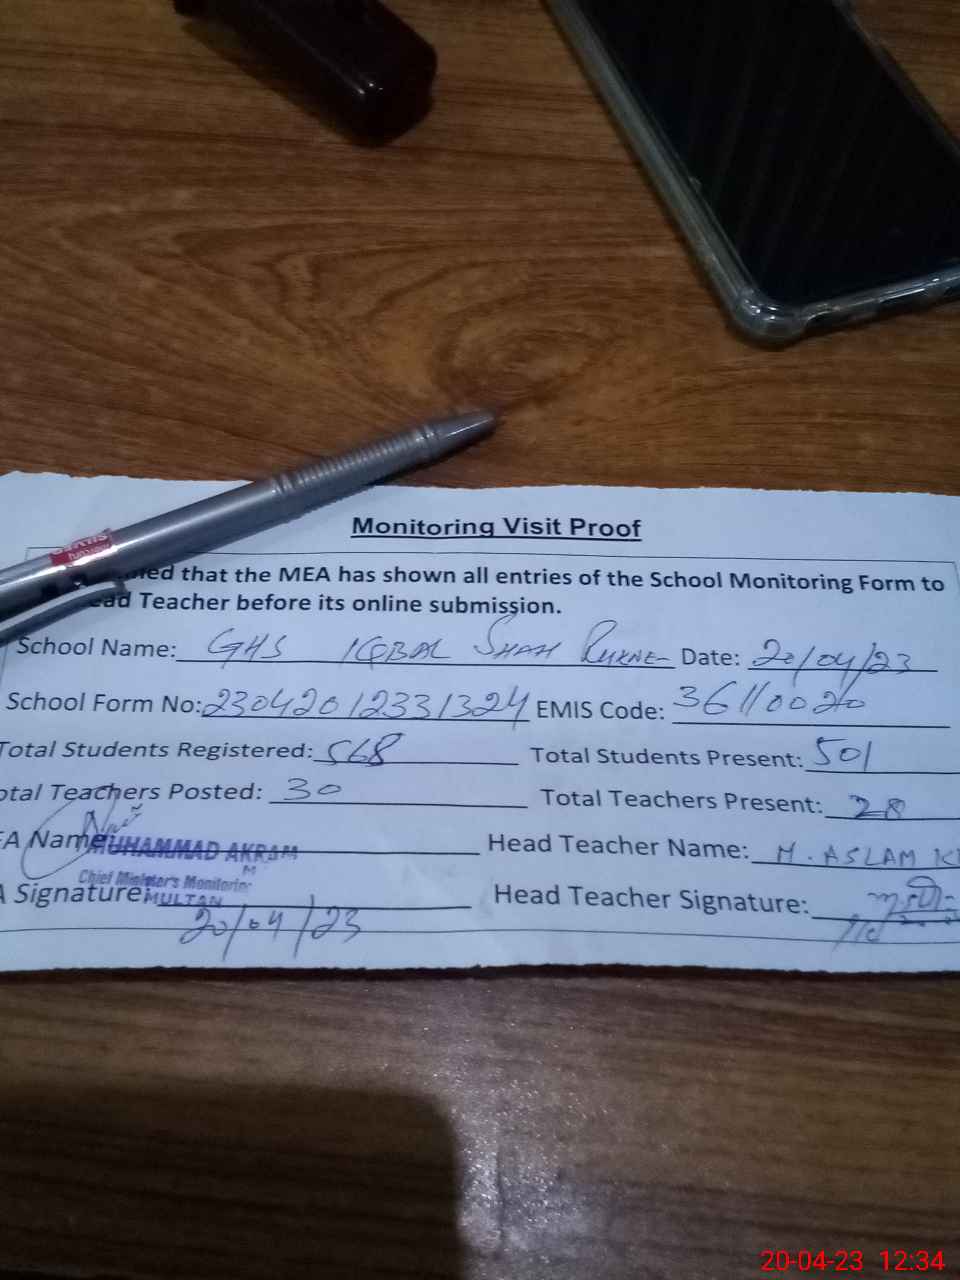 Monitoring Visit Proof
ned that the MEA has shown all entries of the School Monitoring Form to
ead Teacher before its online submission.
School Name: GHS IQBAL SHAH RUKNE Date: 20/04/23
School Form No: 23042012331324 EMIS Code: 36110020
Total Students Registered: 568 Total Students Present: 501
otal Teachers Posted: 30 Total Teachers Present: 28
EA Name MUHAMMAD AKRAM Head Teacher Name: M. ASLAM K
Chief Minister's Monitorin
A Signature: MULTAN Head Teacher Signature:
20/04/23
20-04-23 12:34